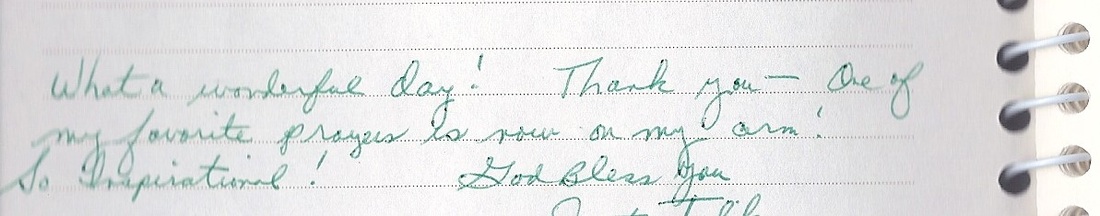 What a wonderful day! Thank you — One of
my favorite prayers is now on my arm!
So Inspirational! God Bless You